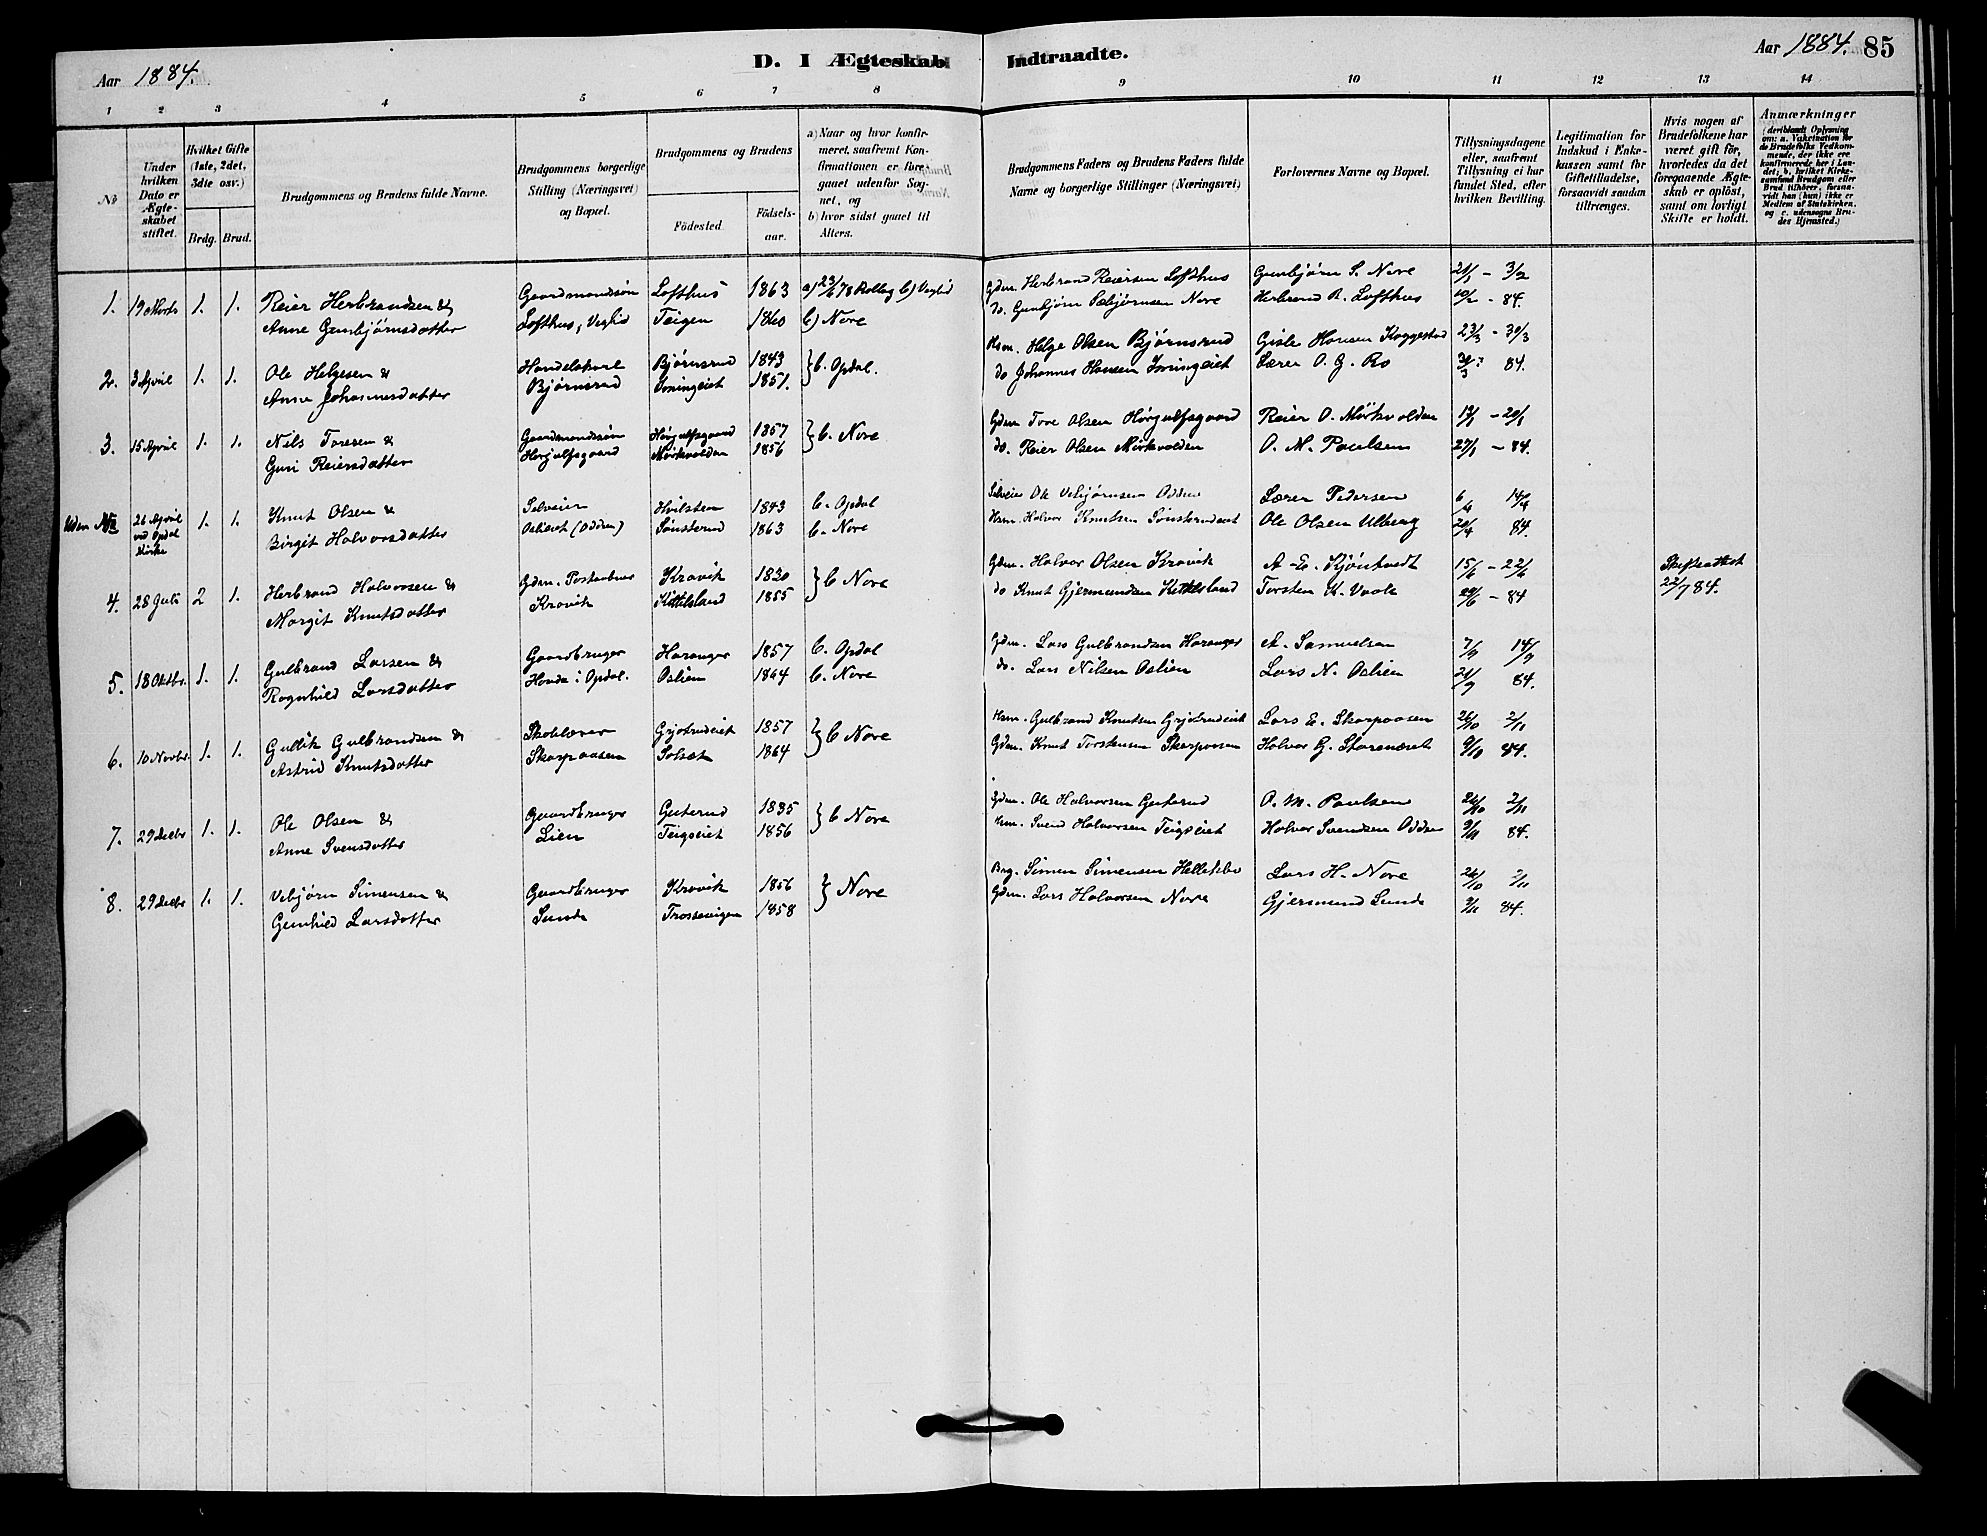 Aar 1884.
D. I Ægteskab Indtraadte.
Aar 1884. 85
1 2 3 4 5 6 7 8 9 10 11 12 13 14
No
Under hvilken Dato er Ægteskabet stiftet.
Hvilket Gifte (1ste, 2det, 3die osv.)
Brdg. Brud.
Brudgommens og Brudens fulde Navne.
Brudgommens borgerlige Stilling (Næringsvei) og Bopæl.
Brudgommens og Brudens
Födested. Födselsaar.
a) Naar og hvor konfirmeret, saafremt Konfirmationen er foregaaet udenfor Sognet, og
b) hvor sidst gaaet til Alters.
Brudgommens Faders og Brudens Faders fulde Navne og borgerlige Stillinger (Næringsvei)
Forlovernes Navne og Bopæl.
Tillysningsdagene eller, saafremt Tillysning ei har fundet Sted, efter hvilken Bevilling.
Legitimation for Indskud i Enkekassen samt for Giftetilladelse, forsaavidt saadan tiltrænges.
Hvis nogen af Brudefolkene har været gift för, hvorledes da det foregaaende Ægteskab er oplöst, samt om lovligt Skifte er holdt.
Anmærkninger (deriblandt Oplysning om: a. Vakcination for de Brudefolks Vedkommende, der ikke ere konfirmerede her i Landet; b. hvilket Kirkesamfund Brudgom eller Brud tilhörer, forsaavidt han (hun) ikke er Medlem af Statskirken, og c. udensogns Brudes Hjemsted.)
1. 19 Marts 1. 1. Reier Herbrandsen & Gaardmandssön Lofthus 1863 a) 23/6 78 Rollag b) Veglid Gdm. Herbrand Reiersen Lofthus Gunbjørn S. Nore 21/1 - 3/2
Anne Gunbjørnsdatter Lofthus, Veglid Teigen 1860 b) Nore do. Gunbjørn Sebjørnsen Nore Herbrand R. Lofthus 10/2 - 84.
2. 3 April 1. 1. Ole Helgesen & Handelskarl Bjørnsrud 1843 } b. Opdal. Hsm. Helge Olsen Bjørnsrud Gisle Hansen Koggestad 23/3 - 30/3
Anne Johannesdatter Bjørnsrud 1851. do Johannes Hansen Lærer O. G. Ro 84.
3. 15 April 1. 1. Nils Toresen & Gaardmandssön Hørjulfsgaard 1857 } b. Nore Gdm. Tore Olsen Hørjulfsgaard Reier O. Mörkvolden 13/1 - 20/1
Guri Reiersdatter Herjulfsgaard Mörkvolden 1856 do. Reier Olsen Mörkvolden O. M. Paulsen 27/1 - 84.
Uden No 26 April ved Opdal Kirke 1. 1. Knut Olsen & Selveier Hvilsteen 1843 b. Opdal Selveier Ole Vebjørnsen Odden Lærer Pedersen 6/4 14/4
Birgit Halvorsdatter Oslieiet (Odden) Sönsterud 1863 b. Nore Hsm. Halvor Knutsen Sönsterudeiet Ole Olsen Ulberg 20/4 84.
4. 28 Juli 2 1. Herbrand Halvorsen & Gdm. Postaabner Kravik 1830 } b Nore Gdm. Halvor Olsen Kravik A. E. Kjöntvedt 15/6 - 22/6 Skifteattest
Margit Knutsdatter Kravik Kittilsland 1855 do Knut Gjermundsen Kittelsland Torsten K. Vaale 29/6 - 84 22/7 84.
5. 18 Oktbr. 1. 1. Gulbrand Larsen & Gaardbruger Haranger 1857 b. Opdal Gdm. Lars Gulbrandsen Haranger A. Samuelsen 7/9 14/9
Ragnhild Larsdatter Hovde i Opdal. Oslien 1864 b. Nore do. Lars Nilsen Oslien Lars N. Oslien 21/9 84.
6. 10 Novbr. 1. 1. Gullik Gulbrandsen & Skolelærer Grjotrudeiet 1857 } b Nore Hsm. Gulbrand Knutsen Grjotrudeiet Lars E. Skarpaasen 26/10 2/11
Astrid Knutsdatter Skarpaasen Solset 1864 Gdm. Knut Torstensen Skarpaasen Halvor G. 9/10 84.
7. 29 Decbr 1. 1. Ole Olsen & Gaardbruger Guterud 1835 } b Nore Gdm. Ole Halvorsen Guterud O. M. Paulsen 26/10 2/11
Anne Svensdatter Lien Teigseiet 1856 hsm. Svend Halvorsen Teigseiet Halvor Svendsen Odden 9/11 84.
8. 29 Decbr 1. 1. Vebjørn Simensen & Gaardbruger Kravik 1856 } Nore Brg. Simen Simensen Lars H. Nore 26/10 2/11
Gunhild Larsdatter Sunde 1858 Gdm. Lars Halvorsen Nore Gjermund Sunde 9/11 84.